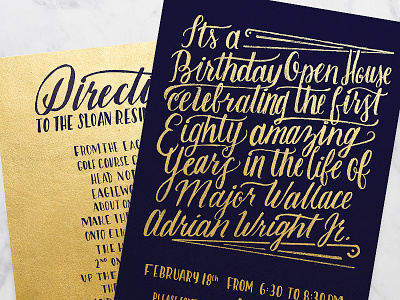 Directo
TO THE SLOAN RESI
FROM THE EAG
GOLF COURSE C
HEAD NOT
EAGLEWO
ABOUT ON
MAKE TH
ONTO ELI
THE H
2ND ON
UP THE
THE
Its a
Birthday Open House
celebrating the first
Eighty amazing
Years in the life of
Major Wallace
Adrian Wright Jr.
FEBRUARY 18th FROM 6:30 TO 8:30P